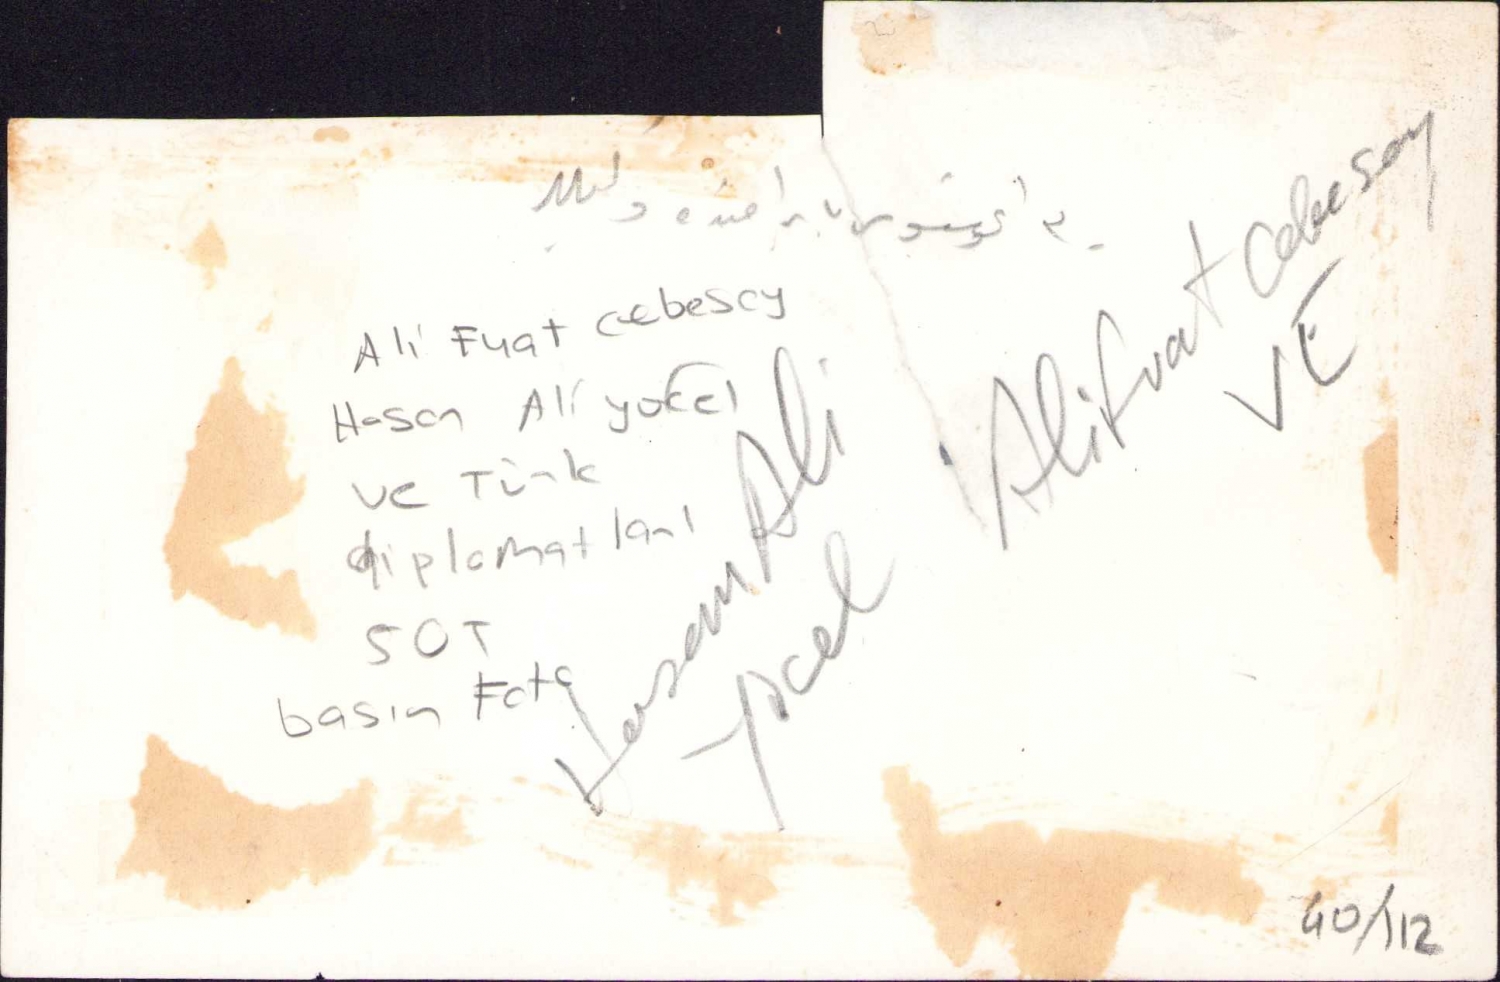 Ali Fuat Cebesoy
Hasan Ali yücel
ve Türk
diplomatları
SOT
basın Foto
Ali Fuat Cebesoy
VE
Hasan Ali
Yücel
40/112